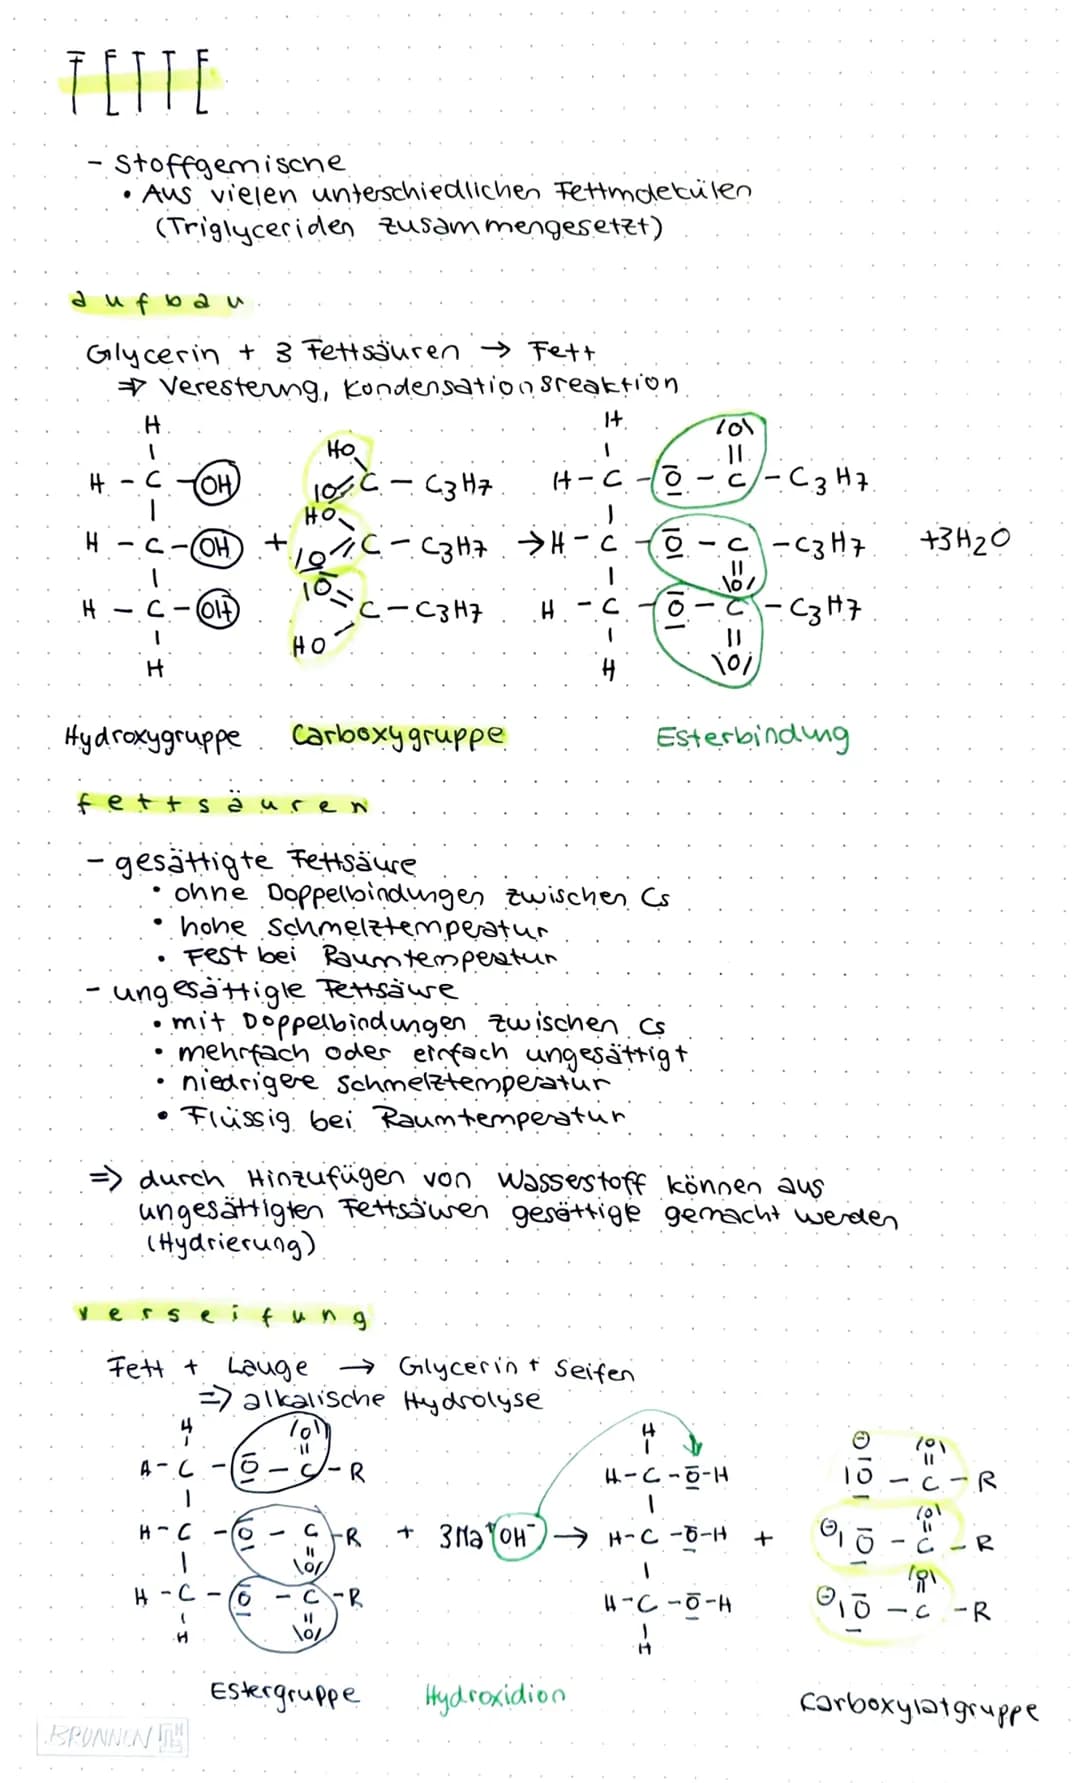 FETTE
- Stoffgemische
• Aus vielen unterschiedlichen Fettmolekülen
(Triglyceriden zusammengesetzt)
aufbau
Glycerin + 3 Fettsäuren → Fett
⇒ Veresterung, Kondensationsreaktion
H H |O|
| HO | ||
H - C - OH |O= C - C3H7 H - C - O - C - C3H7
| HO |
H - C - OH + |O= C - C3H7 → H - C - O - C - C3H7 + 3H2O
| |O= | || |O|
H - C - OH C - C3H7 H - C - O - C - C3H7
| HO | ||
H H |O|
Hydroxygruppe Carboxygruppe Esterbindung
fettsäuren
- gesättigte Fettsäure
• ohne Doppelbindungen zwischen Cs
• hohe Schmelztemperatur
• Fest bei Raumtemperatur
- ungesättigte Fettsäure
• mit Doppelbindungen zwischen Cs
• mehrfach oder einfach ungesättigt
• niedrigere Schmelztemperatur
• Flüssig bei Raumtemperatur
⇒ durch Hinzufügen von Wasserstoff können aus
ungesättigten Fettsäuren gesättigte gemacht werden
(Hydrierung)
verseifung
Fett + Lauge → Glycerin + Seifen
⇒ alkalische Hydrolyse
H |O| H ⊖ |O|
| || | ||
H - C - O - C - R H - C - O - H |O - C - R
| | |O|
H - C - O - C - R + 3Na⁺OH⁻ → H - C - O - H + ⊖|O - C - R
| || |O| | |O|
H - C - O - C - R H - C - O - H ⊖|O - C - R
| || |
H |O| H
Estergruppe Hydroxidion Carboxylatgruppe
BRUNNEN